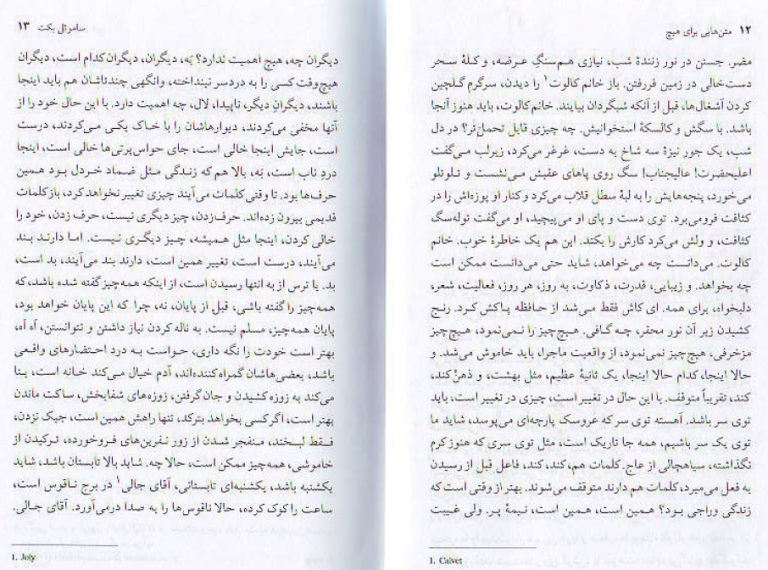 ۱۲ متن‌هایی برای هیچ
مضر. جستن در نور زنندهٔ شب، نیازی هم‌سنگِ عرضه، و کلهٔ سحر
دست‌خالی در زمین فرورفتن. باز خانم کالوت۱ را دیدن، سرگرم گلچین
کردن آشغال‌ها، قبل از آنکه شبگردان بیایند. خانم کالوت، باید هنوز آنجا
باشد. با سگش و کالسکهٔ استخوانیش. چه چیزی قابل تحمل‌تر؟ در دل
شب، یک جور نیزهٔ سه شاخ به دست، غرغر می‌کرد، زیرلب می‌گفت
اعلیحضرت! عالیجناب! سگ روی پاهای عقبش می‌نشست و تلوتلو
می‌خورد، پنجه‌هایش را به لبهٔ سطل قلاب می‌کرد و کنار او پوزه‌اش را در
کثافت فرومی‌برد. توی دست و پای او می‌پیچید، او می‌گفت توله‌سگ
کثافت، و ولش می‌کرد کارش را بکند. این هم یک خاطرهٔ خوب. خانم
کالوت. می‌دانست چه می‌خواهد، شاید حتی می‌دانست ممکن است
چه بخواهد. و زیبایی، قدرت، ذکاوت، به روز، هر روز، فعالیت، شعر،
دلبخواه، برای همه. ای کاش فقط می‌شد از حافظه پاکش کرد. رنج
کشیدن زیر آن نور محقر، چه گافی. هیچ‌چیز را نمی‌نمود، هیچ‌چیز
مزخرفی، هیچ‌چیز نمی‌نمود، از واقعیت ماجرا، باید خاموش می‌شد. و
حالا اینجا، کدام حالا اینجا، یک ثانیهٔ عظیم، مثل بهشت، و ذهن کند،
کند، تقریباً متوقف. با این حال در تغییر است، چیزی در تغییر است، باید
توی سر باشد. آهسته توی سر که عروسک پارچه‌ای می‌پوسد، شاید ما
توی یک سر باشیم، همه جا تاریک است، مثل توی سری که هنوز کرم
نگذاشته، سیاهچالی از عاج. کلمات هم، کند، کند، فاعل قبل از رسیدن
به فعل می‌میرد، کلمات هم دارند متوقف می‌شوند. بهتر از وقتی است که
زندگی وراجی بود؟ همین است، همین است، نیمهٔ پر. ولی غیبت
1. Calvet
ساموئل بکت ۱۳
دیگران چه، هیچ اهمیت ندارد؟ بَه، دیگران، دیگران کدام است، دیگران
هیچ‌وقت کسی را به دردسر نینداخته، وانگهی چندتاشان هم باید اینجا
باشند، دیگرانِ دیگر، ناپیدا، لال، چه اهمیت دارد. با این حال خود را از
آنها مخفی می‌کردند، دیوارهاشان را با خاک یکی می‌کردند، درست
است، جایش اینجا خالی است، جای حواس‌پرتی‌ها خالی است، اینجا
دردِ ناب است، بَه، بالا هم که زندگی مثل ضماد خردل بود همین
حرف‌ها بود. تا وقتی کلمات می‌آیند چیزی تغییر نخواهد کرد، باز کلمات
قدیمی بیرون زده‌اند. حرف‌زدن، چیز دیگری نیست، حرف زدن، خود را
خالی کردن، اینجا مثل همیشه، چیز دیگری نیست. اما دارند بند
می‌آیند، درست است، تغییر همین است، دارند بند می‌آیند، بد است،
بد. یا ترس از به انتها رسیدن است، از اینکه همه‌چیز گفته شده باشد، که
همه‌چیز را گفته باشی، قبل از پایان، نه، چرا که این پایان خواهد بود،
پایان همه‌چیز، مسلم نیست. به ناله کردن نیاز داشتن و نتوانستن، اَه اَه،
بهتر است خودت را نگه داری، حواست به درد احتضارهای واقعی
باشد، بعضی‌هاشان گمراه‌کننده‌اند، آدم خیال می‌کند خانه است، بنا
می‌کند به زوزه کشیدن و جان گرفتن، زوزه‌های شفابخش، ساکت ماندن
بهتر است، اگر کسی بخواهد بترکد، تنها راهش همین است، جیک نزدن،
فقط لبخند، منفجر شدن از زور نفرین‌های فروخورده، ترکیدن از
خاموشی، همه‌چیز ممکن است، حالا چه. شاید بالا تابستان باشد، شاید
یکشنبه باشد، یکشنبه‌ای تابستانی، آقای جالی۱ در برج ناقوس است،
ساعت را کوک کرده، حالا ناقوس‌ها را به صدا درمی‌آورد. آقای جالی.
1. Joly